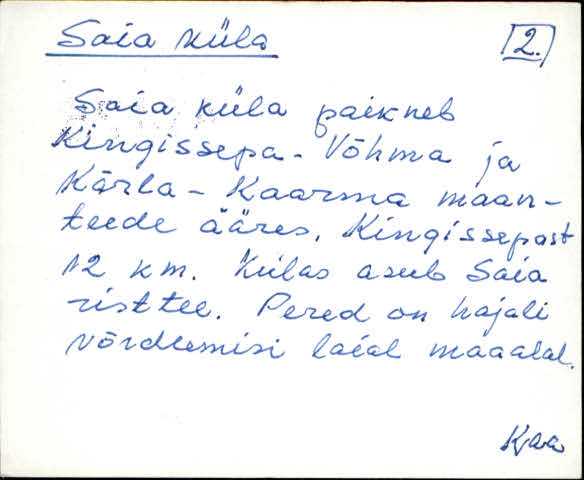 Saia küla
2.
Saia küla paikneb
Kingissepa - Võhma ja
Kärla - Kaarma maan-
teede ääres, Kingissepast
12 km. Külas asub Saia
risttee. Pered on hajali
võrdlemisi laial maaalal.
Kaa